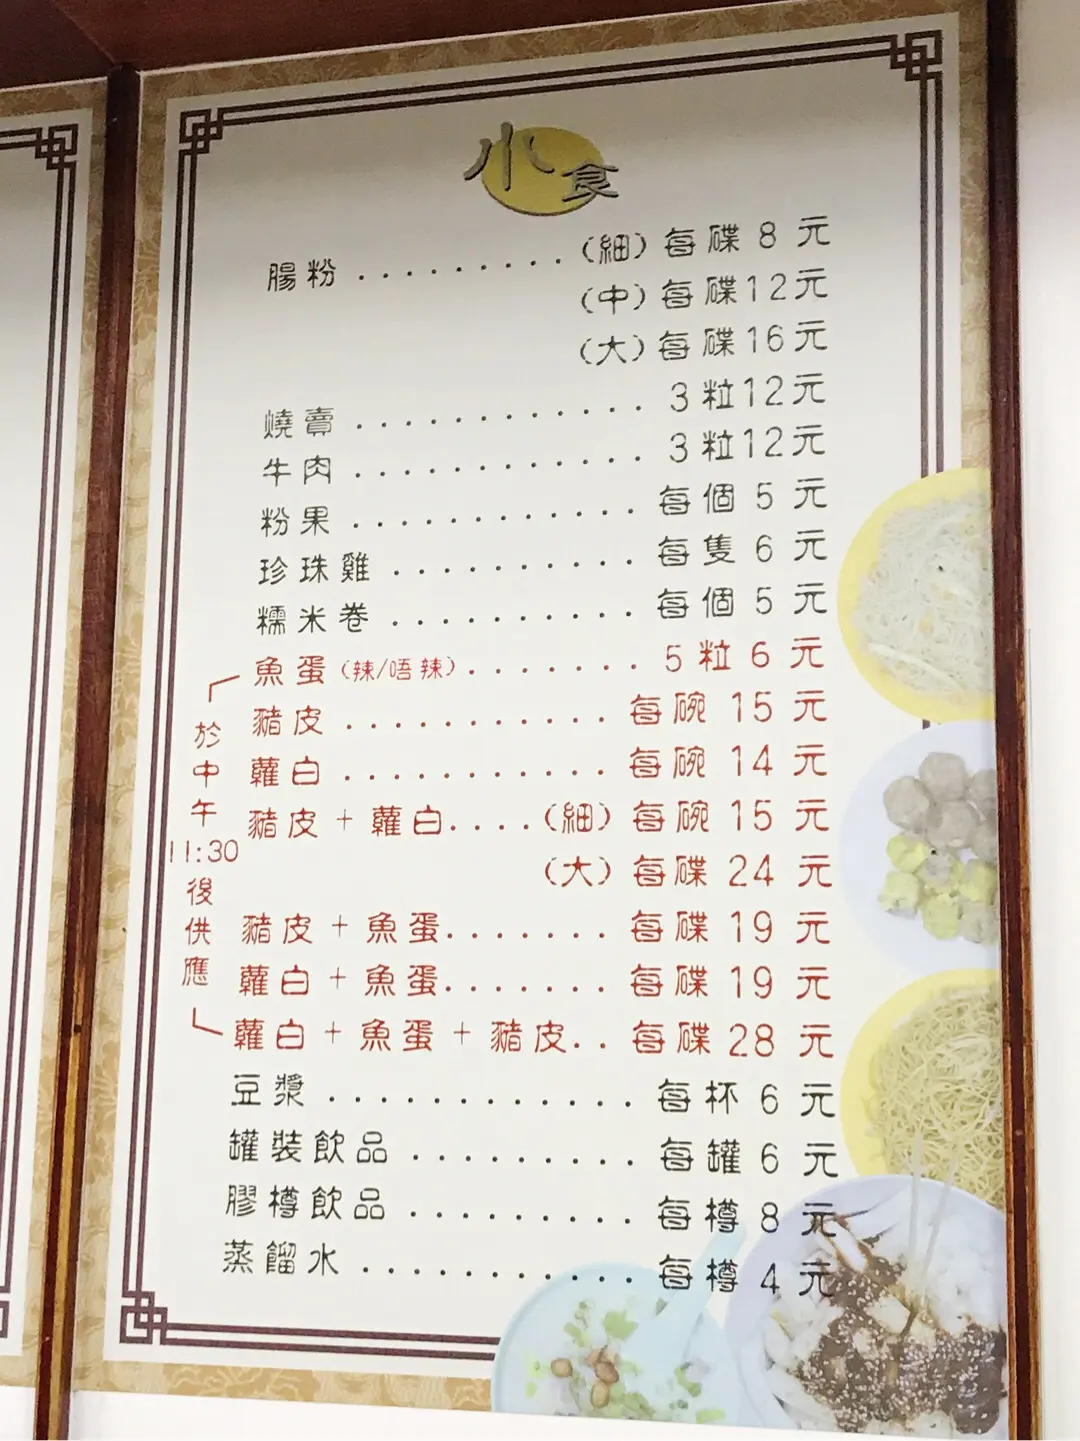 小食
腸粉..........(細)每碟 8 元
(中)每碟12元
(大)每碟16元
燒賣.............3粒12元
牛肉.............3粒12元
粉果.............每個 5 元
珍珠雞...........每隻 6 元
糯米卷...........每個 5 元
魚蛋(辣/唔辣)........5粒 6 元
豬皮............每碗 15 元
蘿白............每碗 14 元
豬皮+蘿白....(細)每碗 15 元
(大)每碟 24 元
豬皮+魚蛋.......每碟 19 元
蘿白+魚蛋.......每碟 19 元
蘿白+魚蛋+豬皮..每碟 28 元
於中午11:30後供應
豆漿.............每杯 6 元
罐裝飲品..........每罐 6 元
膠樽飲品..........每樽 8 元
蒸餾水............每樽 4 元